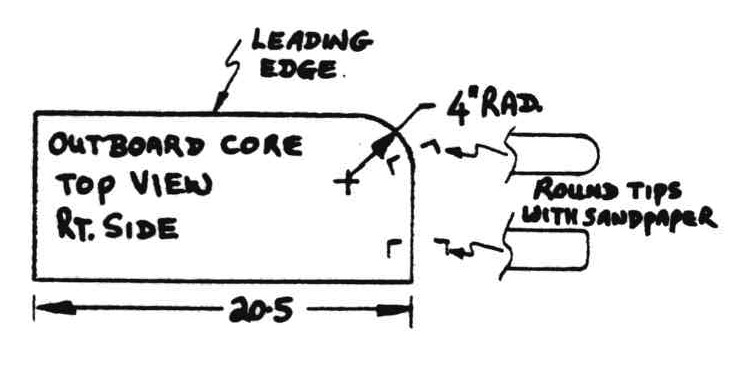 LEADING
EDGE.
4" RAD.
OUTBOARD CORE
TOP VIEW
RT. SIDE
ROUND TIPS
WITH SANDPAPER
20.5